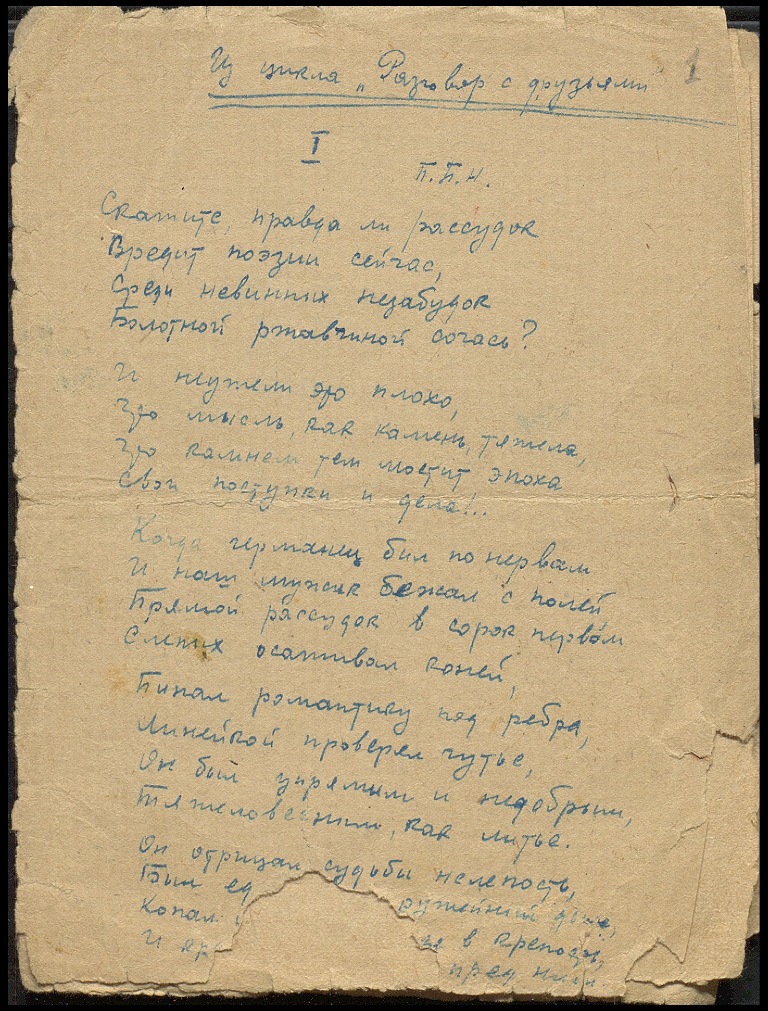 Из цикла „Разговор с друзьями" 1
I
П.Б.Н.
Скажите, правда ли рассудок
Вредит поэзии сейчас,
Среди невинных незабудок
Болотной ржавчиной сочась?
И неужели это плохо,
Что мысль, как камень, тяжела,
Что камнем тем мостит эпоха
Свои поступки и дела!..
Когда германец бил по нервам
И наш мужик бежал с полей
Прямой рассудок в сорок первом
Слепых осаживал коней,
Пинал романтику под ребра,
Линейкой проверял чутье,
Он был упрямым и недобрым,
Тяжеловесным, как литье.
Он отрицал судьбы нелепость,
Был ед ружейный дым,
Копал в крепость,
И пред ним